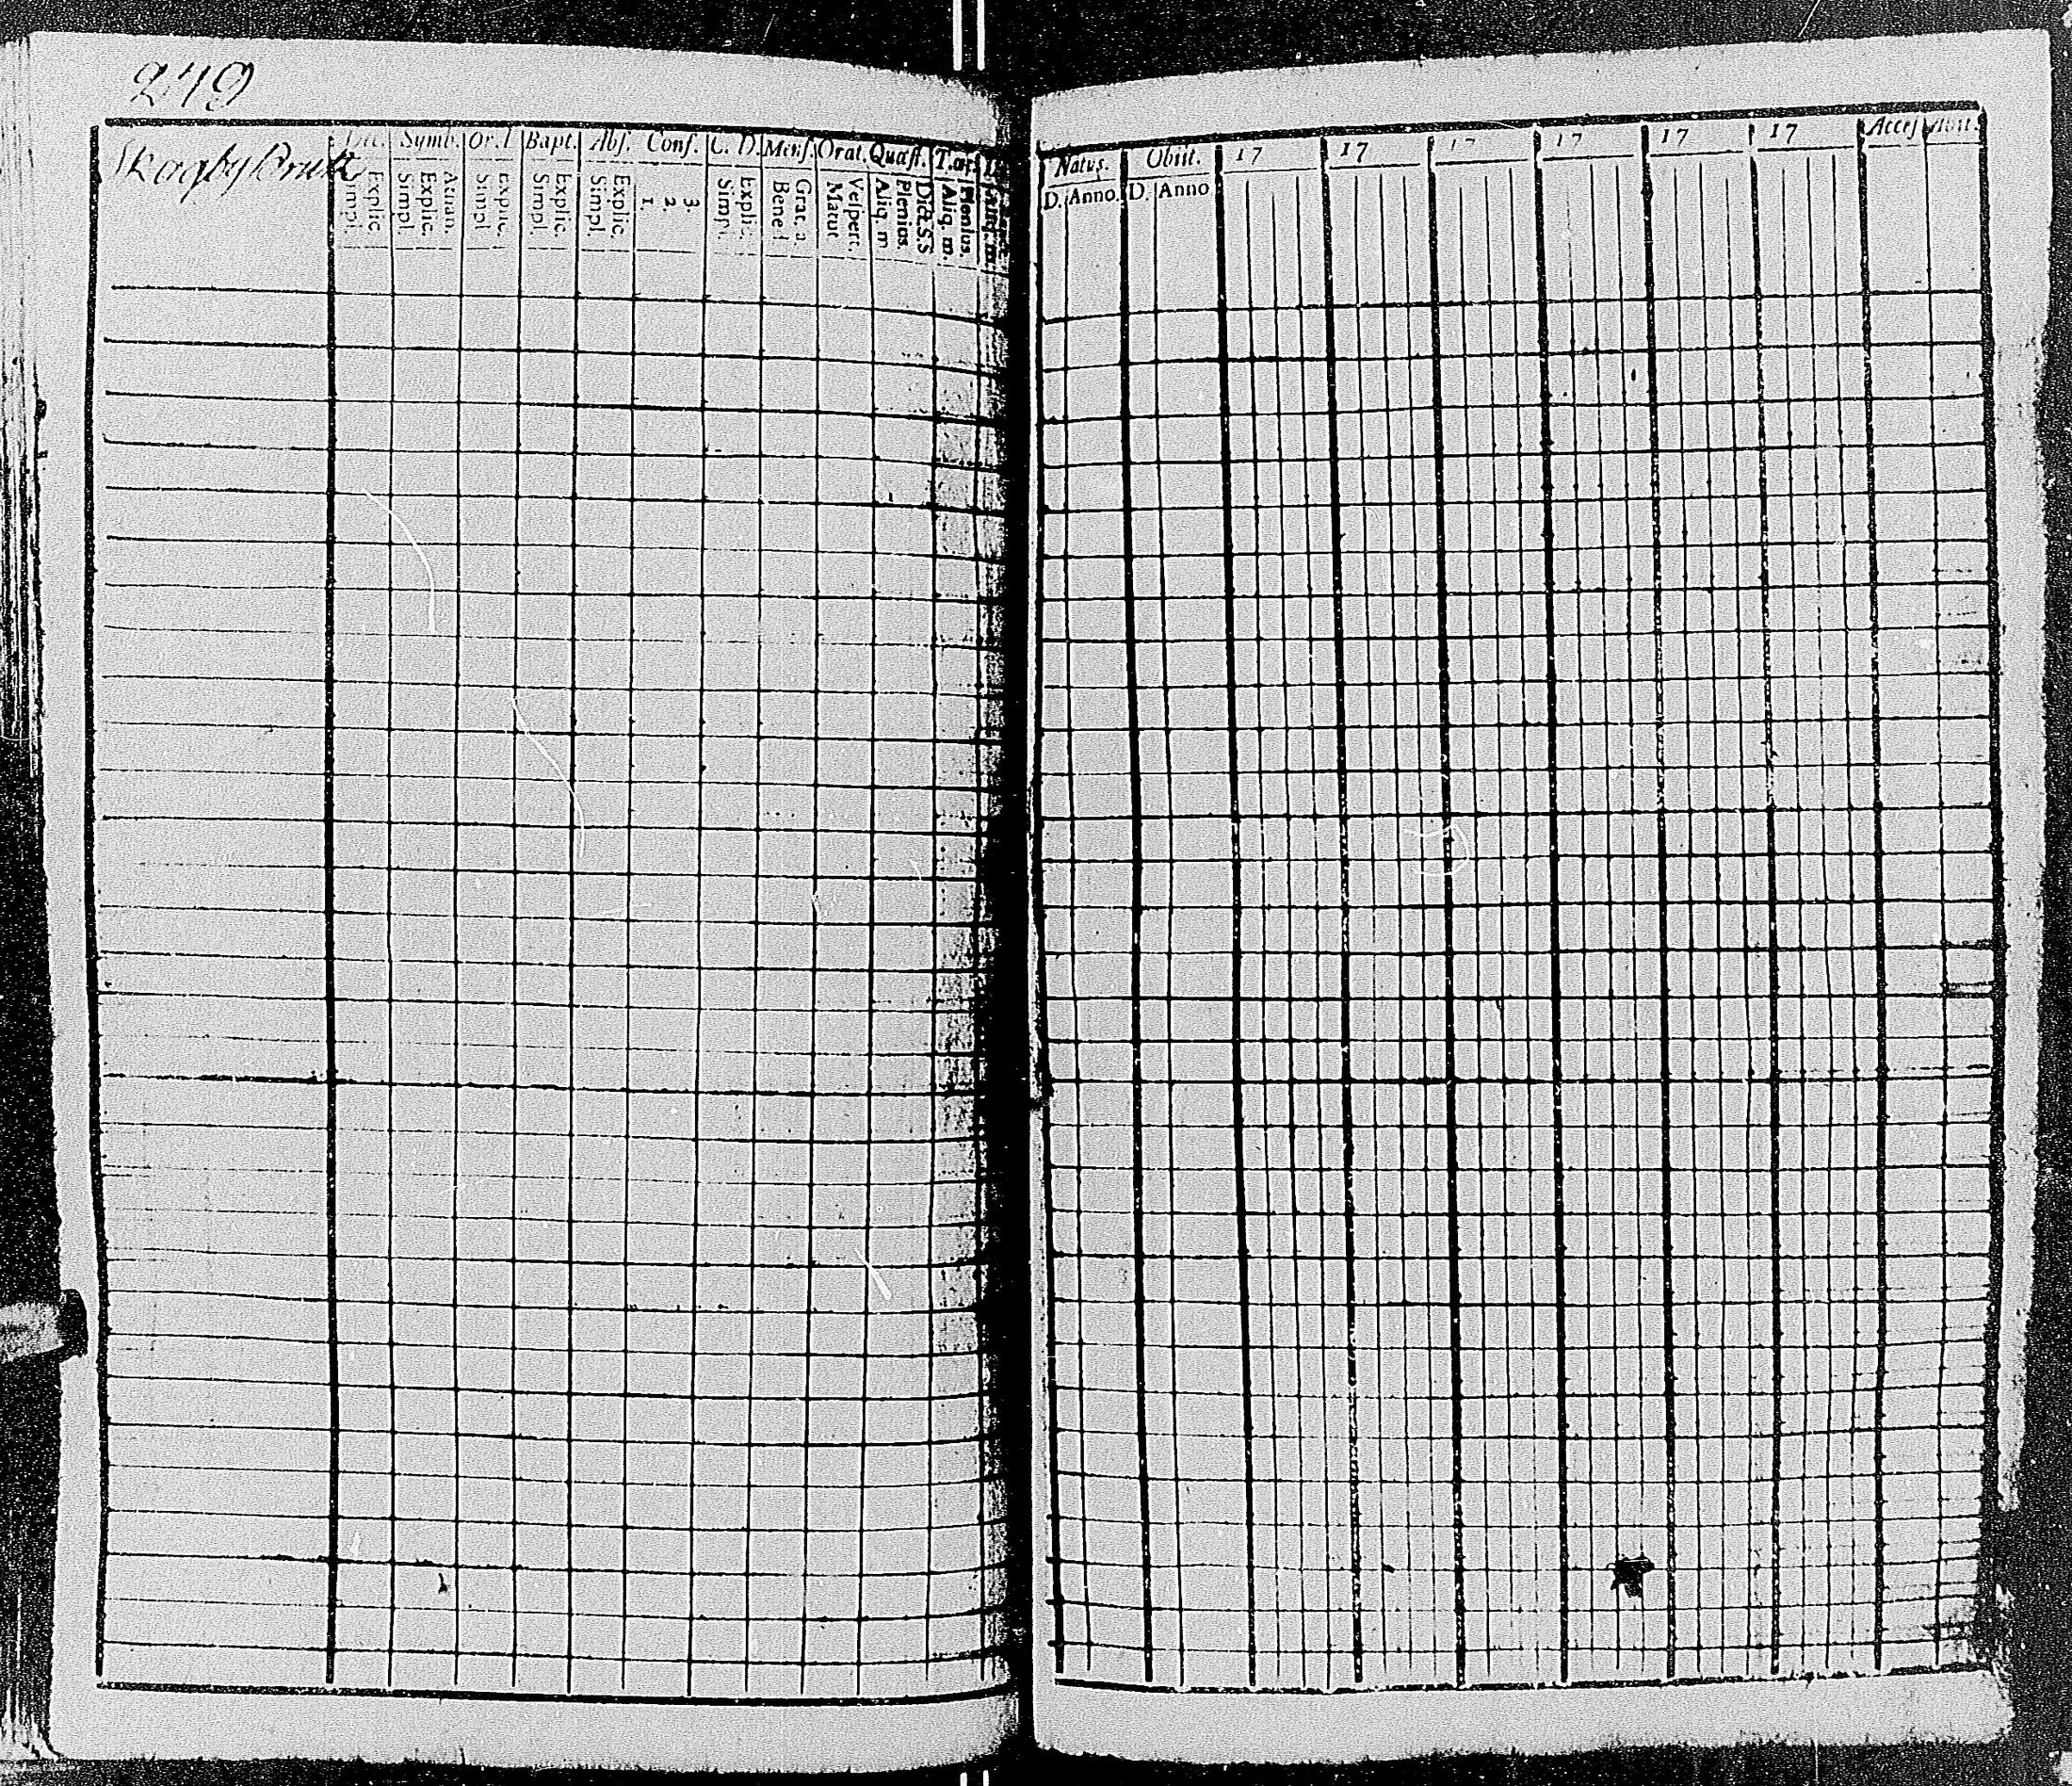 249
Skogby Bruk
Symb. Or. Bapt. Abs. Conf. C. D. Mens. Orat. Quæst. T. œc.
Explic. Simpl.
Athan. Explic. Simpl.
Explic. Simpl
Explic. Simpl.
Explic. Simpl.
3. 2. 1.
Explic. Simpl.
Grat. a. Bened
Vespert. Matut
Dict. S.S Plenius. Aliq. m
Plenius. Aliq. m.
Natus. Obiit. 17 17 17 17 17 17 Access Abiit.
D. Anno. D. Anno